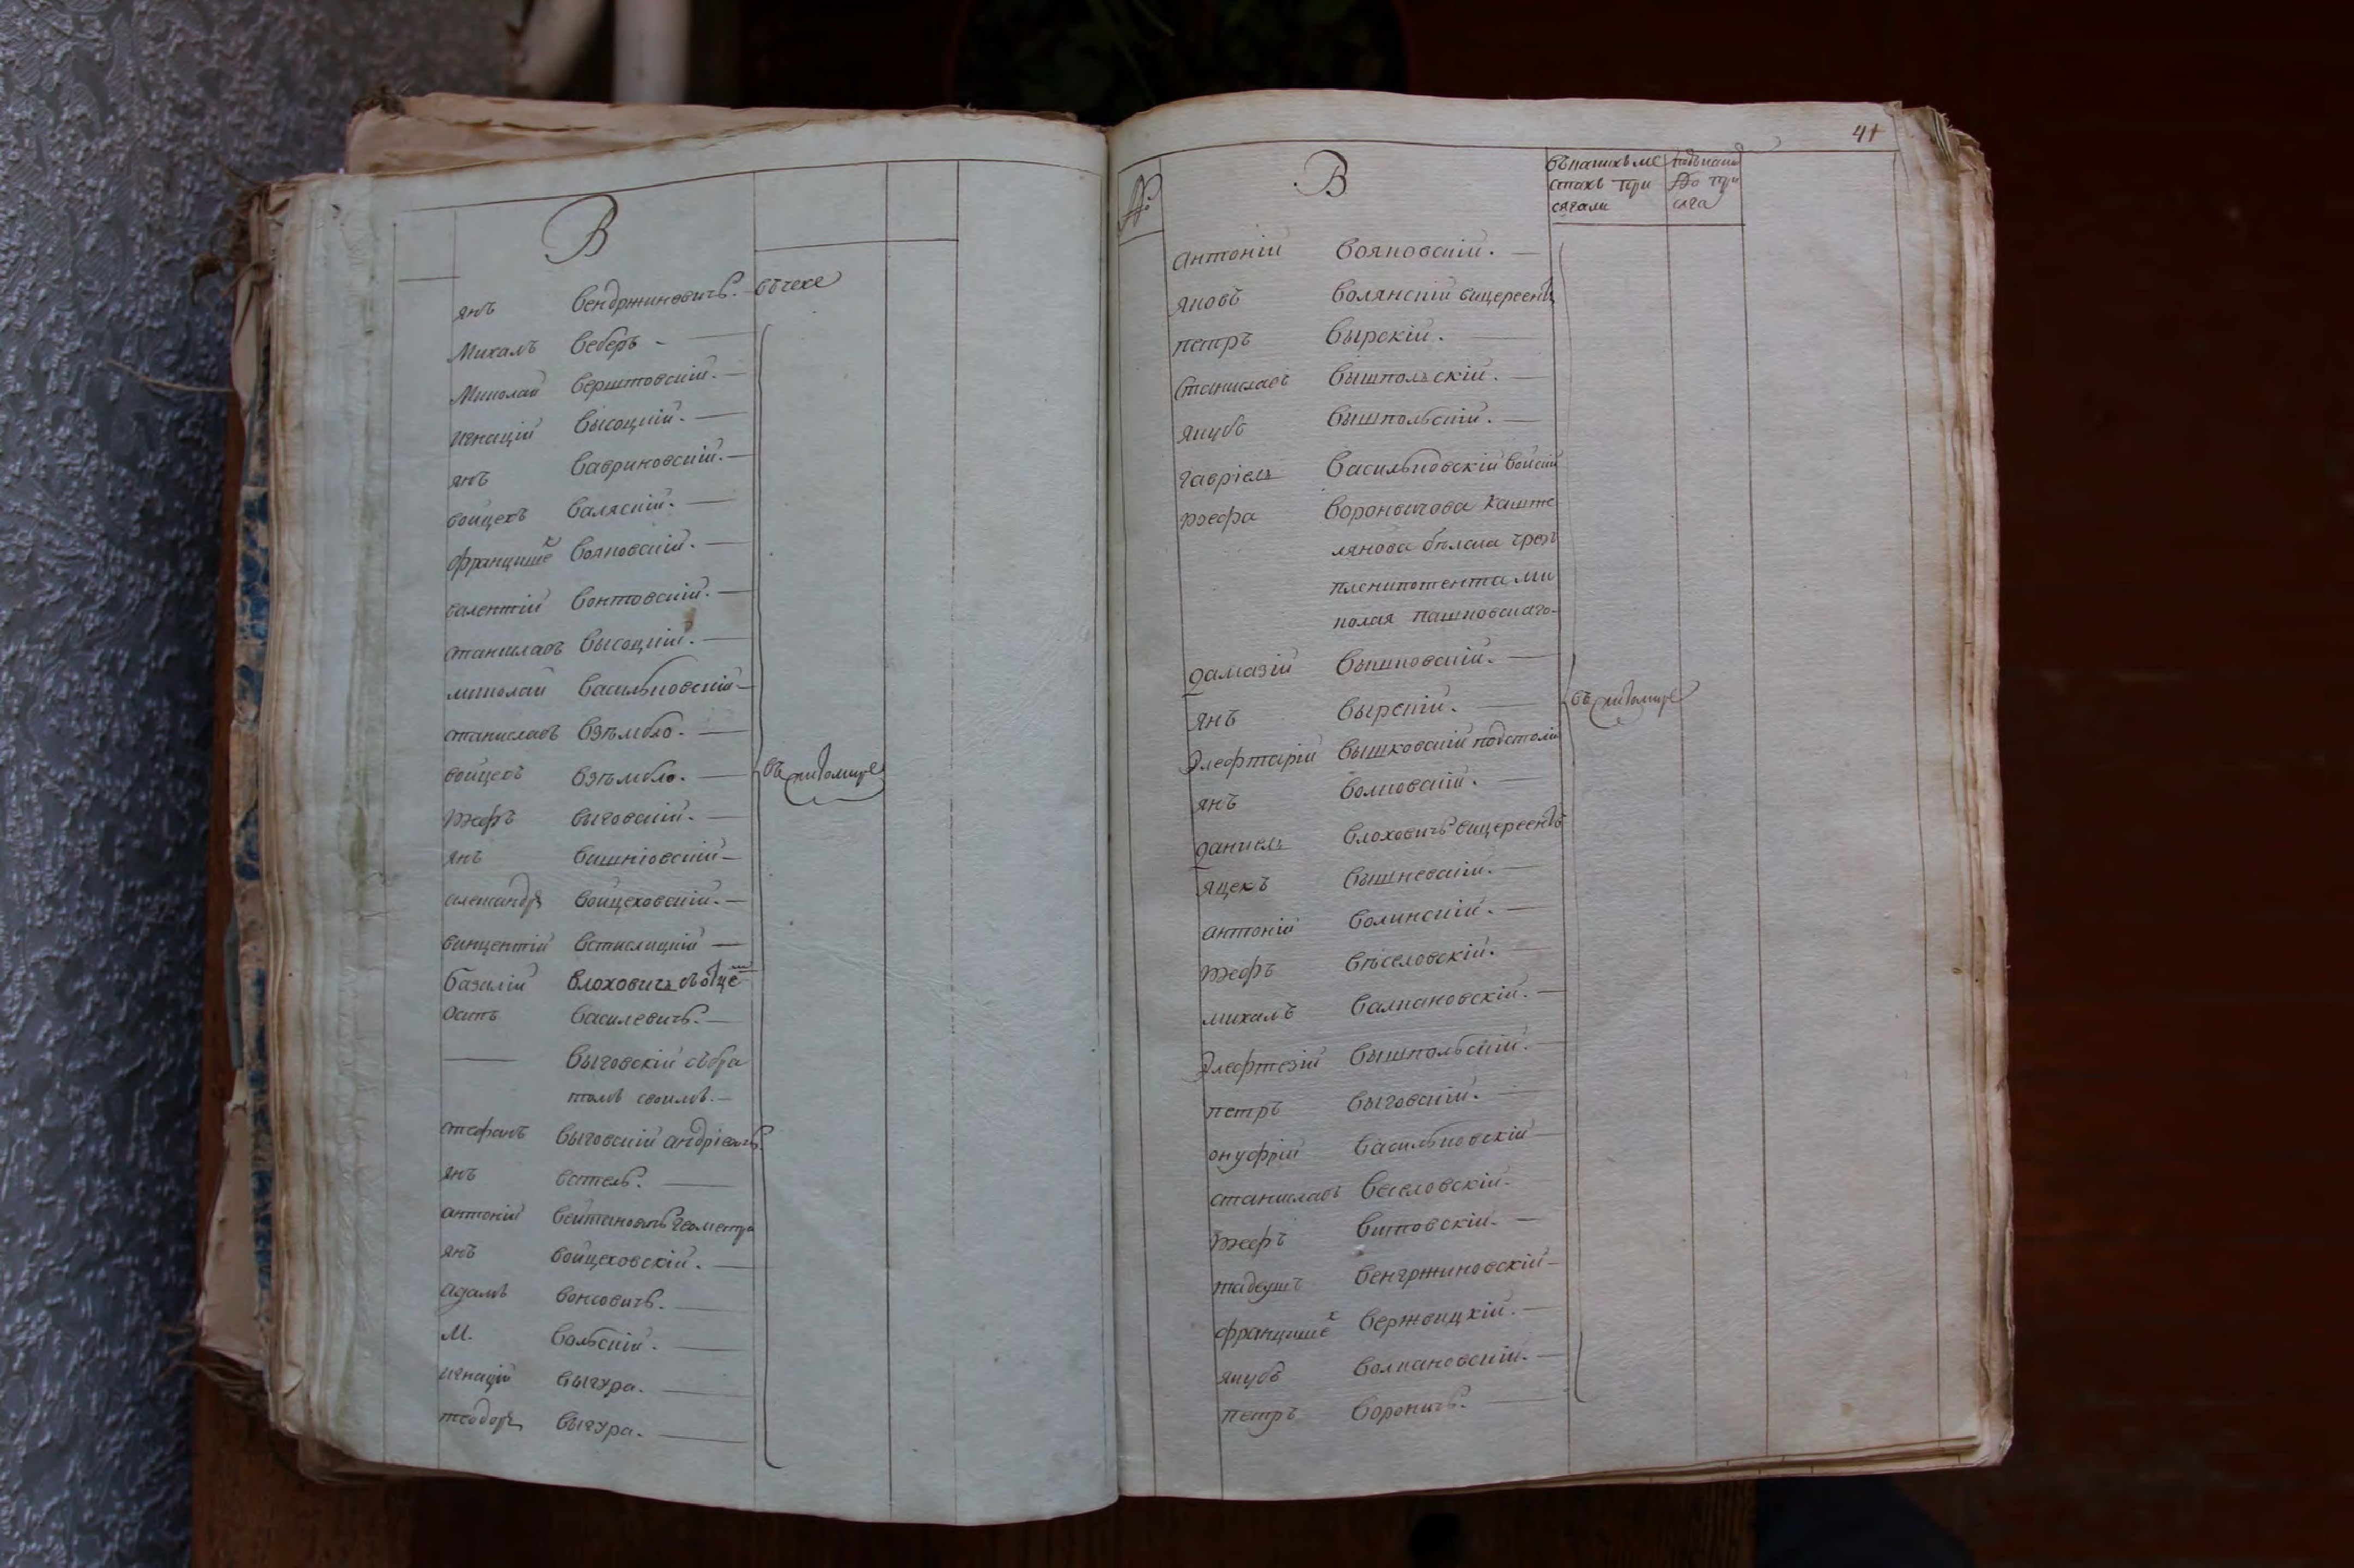 В
янъ Вендржиновичъ. въ чехе
Михалъ Веберъ -
Миколай Верштовскій.
игнацій Высоцкій.
янъ Вавриновскій.
войцехъ Валяскій.
францишекъ Вояновскій.
валентій Вонтовскій.
станиславъ Высоцкій.
миколай Васильковскій
станиславъ Взѣмбло.
войцехъ Взѣмбло. въ житомире
юзефъ выговскій.
янъ вишніовскій
александръ войцеховскій.
винцентій встислицкій
базилій влоховичъ съ отцемъ
осипъ василевичъ.
выговскій съ бра
томъ своимъ.
стефанъ выговскій андріевичъ.
янъ
антоній геометра
янъ войцеховскій.
адамъ вонсовичъ.
М. вольскій.
игнацій выгура.
теодоръ выгура.
41
№ В въ нашихъ ме
стахъ при
сягали
до при
сяга
антоній вояновскій.
яковъ волянскій вицереентъ
петръ вырскій.
станиславъ вышпольскій.
якубъ вышпольскій.
гавріель васильковскій войскій
юзефа вороничова каште
лянова бѣлска чрезъ
пленипотента ми
колая пашковскаго
дамазій
янъ вырскій. въ житомире
элефтерій вышковскій подстолій
янъ волковскій.
даниель влоховичъ вицереентъ
яцекъ вышневскій.
антоній волинскій.
юзефъ вѣселовскій.
михалъ валкановскій.
элефтезій вышпольскій.
петръ выговскій.
онуфрій васильковскій
станиславъ веселовскій.
юзефъ витовскій.
тадеушъ венгржиновскій
францишекъ вержвицкій.
якубъ волкановскій.
петръ вороничъ.